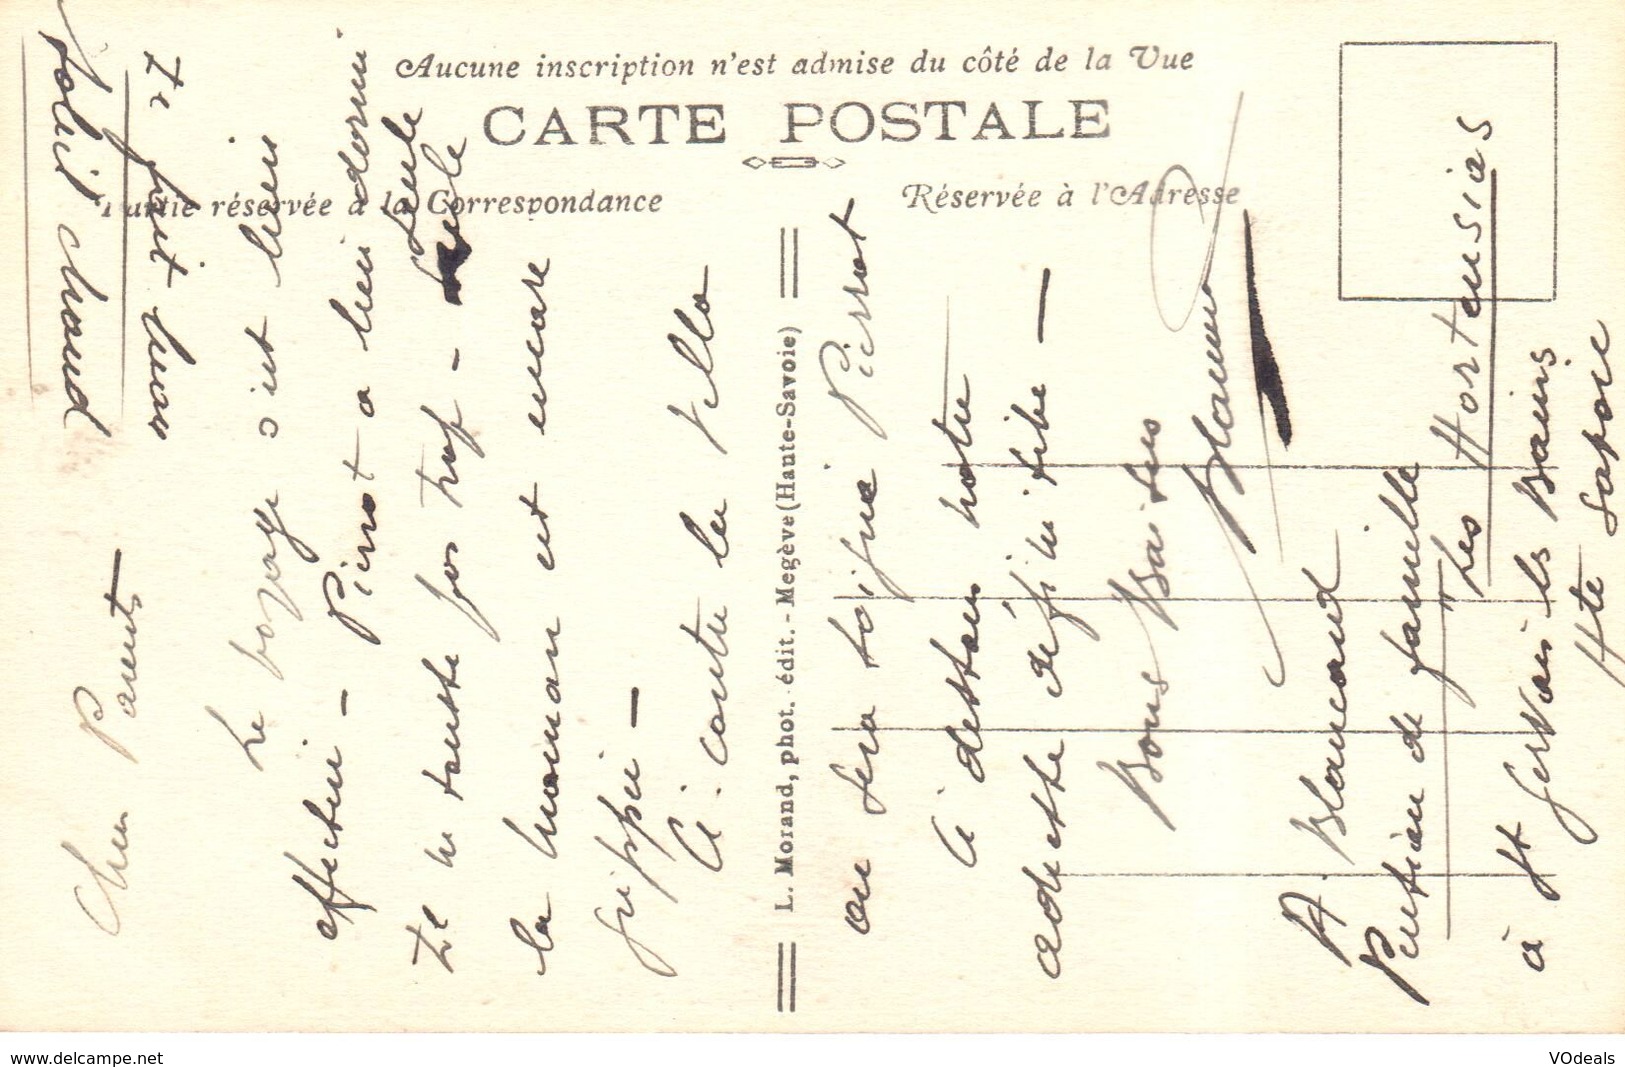 Aucune inscription n'est admise du côté de la Vue
CARTE POSTALE
Partie réservée à la Correspondance
Réservée à l'Adresse
L. Morand, phot. édit. - Megève (Haute-Savoie)
Il fait beau
soleil chaud
Chers Parents —
Le voyage s'est bien
effectué — Pierrot a bien dormi
Il ne tousse pas trop — seule
seule
la maman est encore
grippée —
Ci-contre la villa
où sera soigné Pierrot
Ci dessous notre
adresse définitive —
Bons Baisers
A. Blancand
Pension de famille
"Les Hortensias
à St Gervais les Bains
Hte Savoie
www.delcampe.net
VOdeals